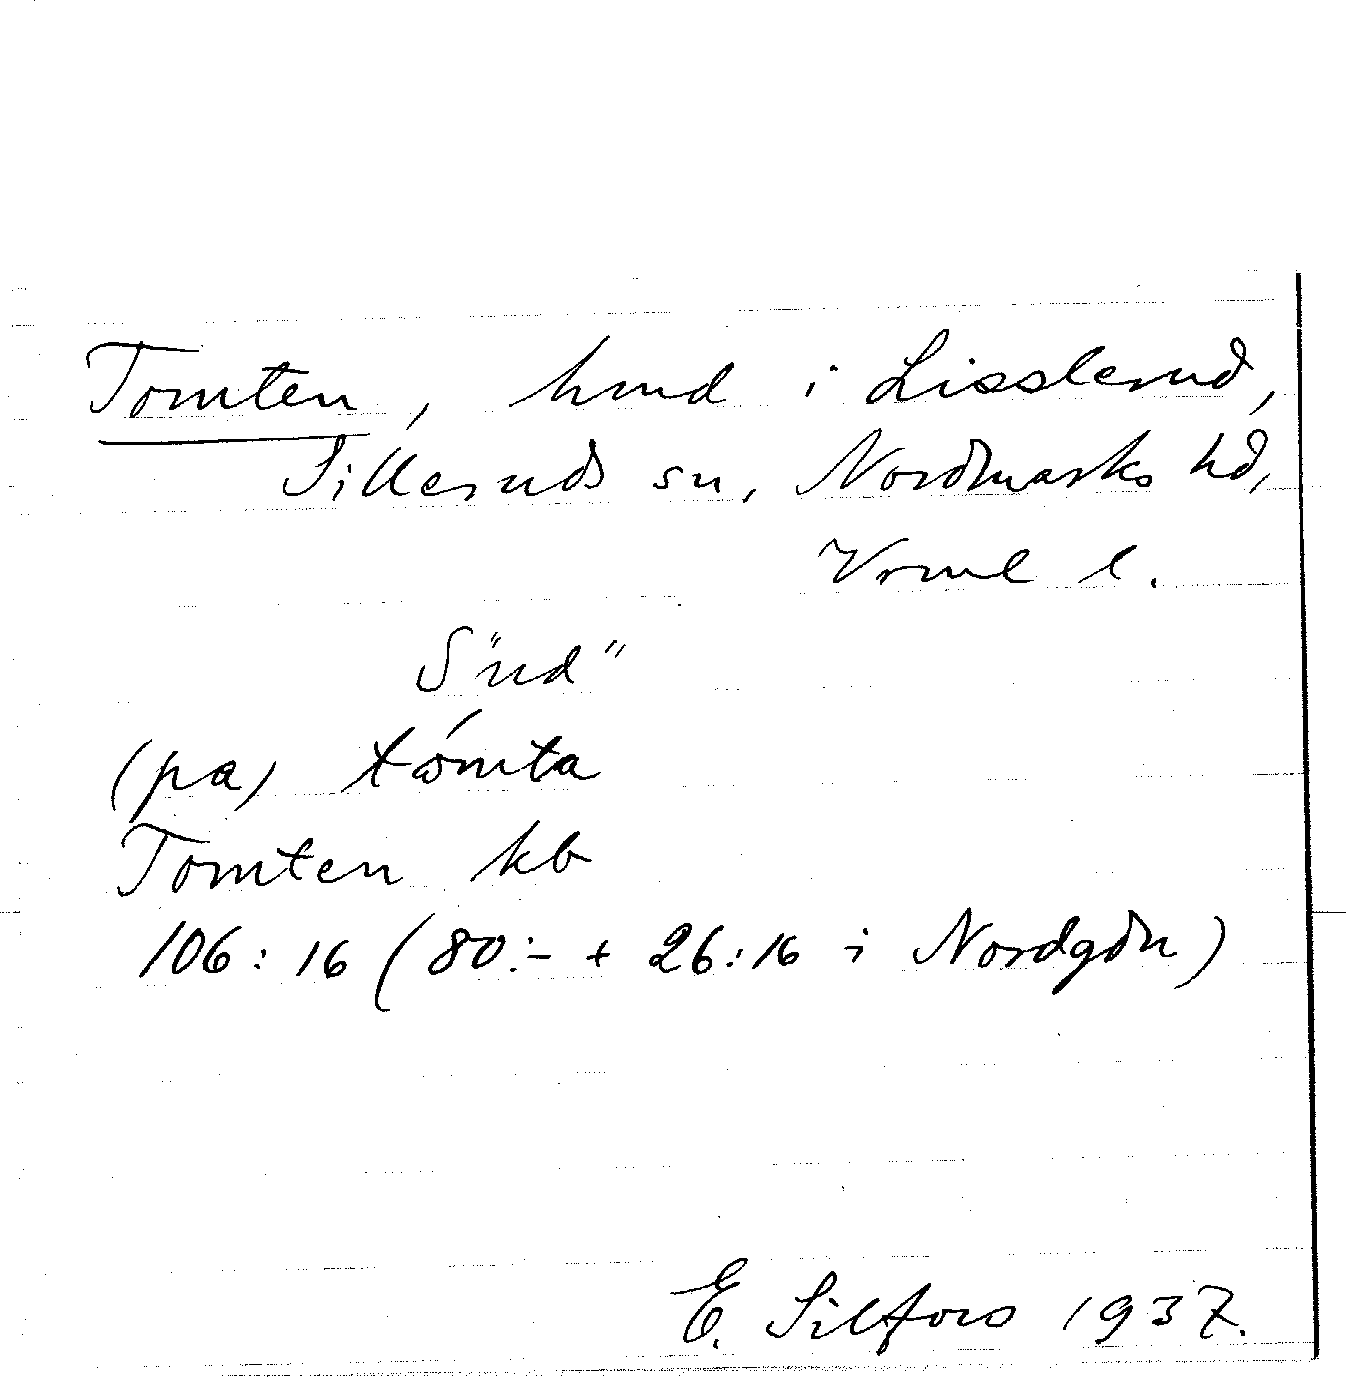 Tomten, hmd i Lisslerud,
Silleruds sn, Nordmarks hd,
Vrml l.
S "ud"
(pa) tómta
Tomten kb
106:16 (80:- + 26:16 i Nordgdn)
E. Silfors 1937.